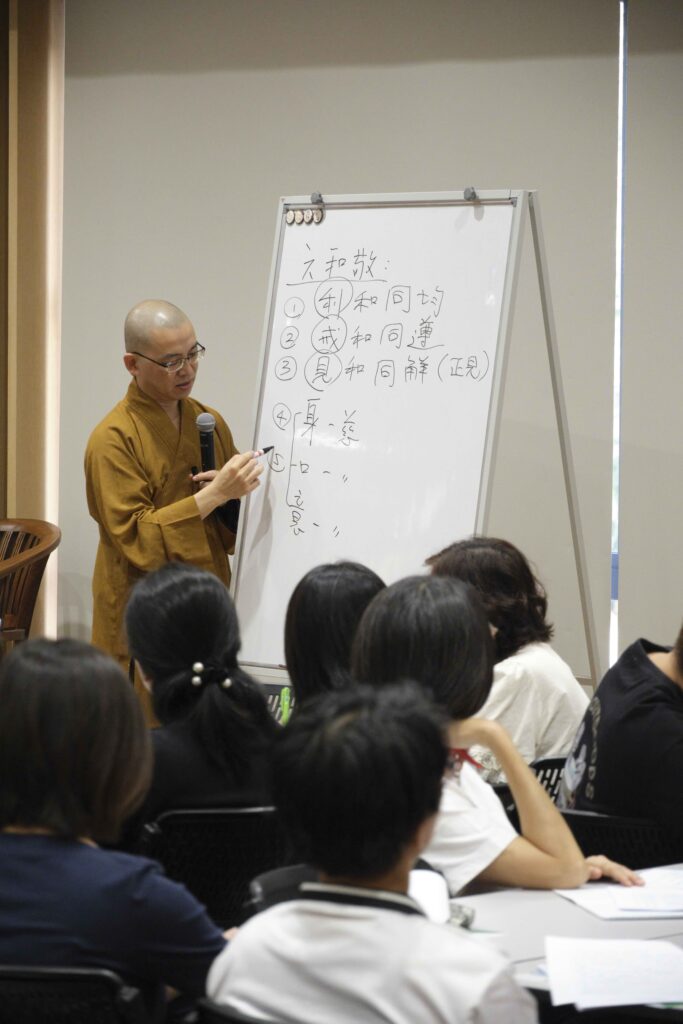 六和敬:
① 利和同均
② 戒和同遵
③ 見和同解(正見)
④ 身-慈
⑤ 口-〃
意-〃